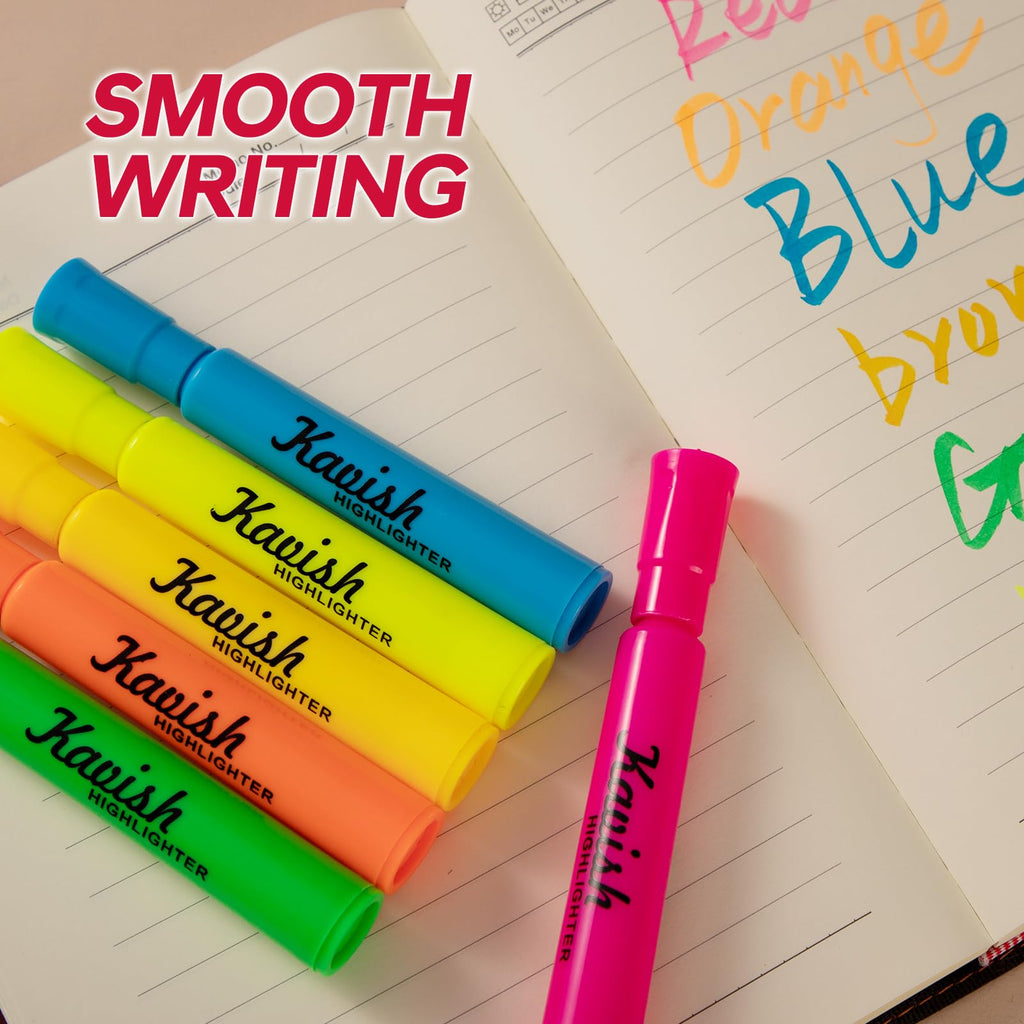 SMOOTH
WRITING
Mo Tu We
Orange
Blue
Kavish
HIGHLIGHTER
Kavish
HIGHLIGHTER
Kavish
HIGHLIGHTER
Kavish
HIGHLIGHTER
Kavish
HIGHLIGHTER
Kavish
HIGHLIGHTER